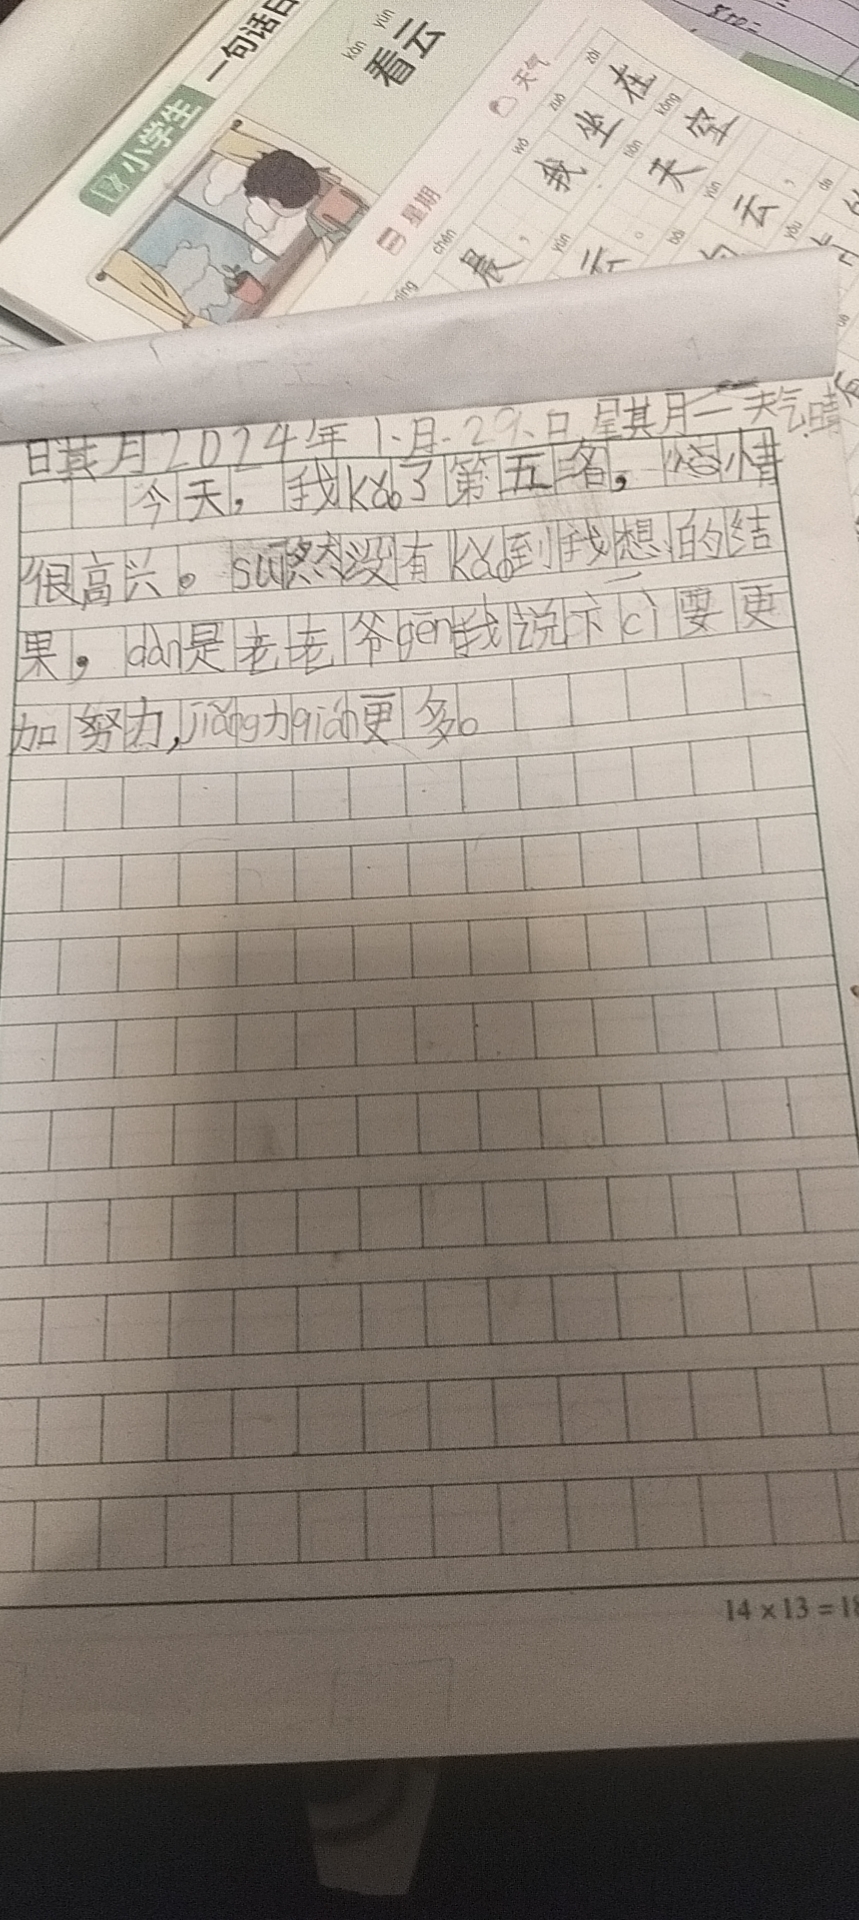 小学生
一句话日
kàn yún
看云
星期
天气
chén wǒ zuò zài
晨，我坐在
yún tiān kōng
云。天空
bái yún
云，
日期月2024年1月29日星其月一天气晴
今天，我kǎo了第五名，心情
很高兴。suī然没有kǎo到我想的结
果，dàn是老老爷gēn我说下cì要更
加努力，jiǎng力qián更多。
14×13=18